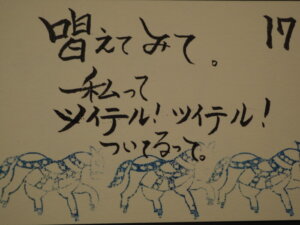 17
唱えてみて。
私って
ツイテル！ツイテル！
ついてるって。